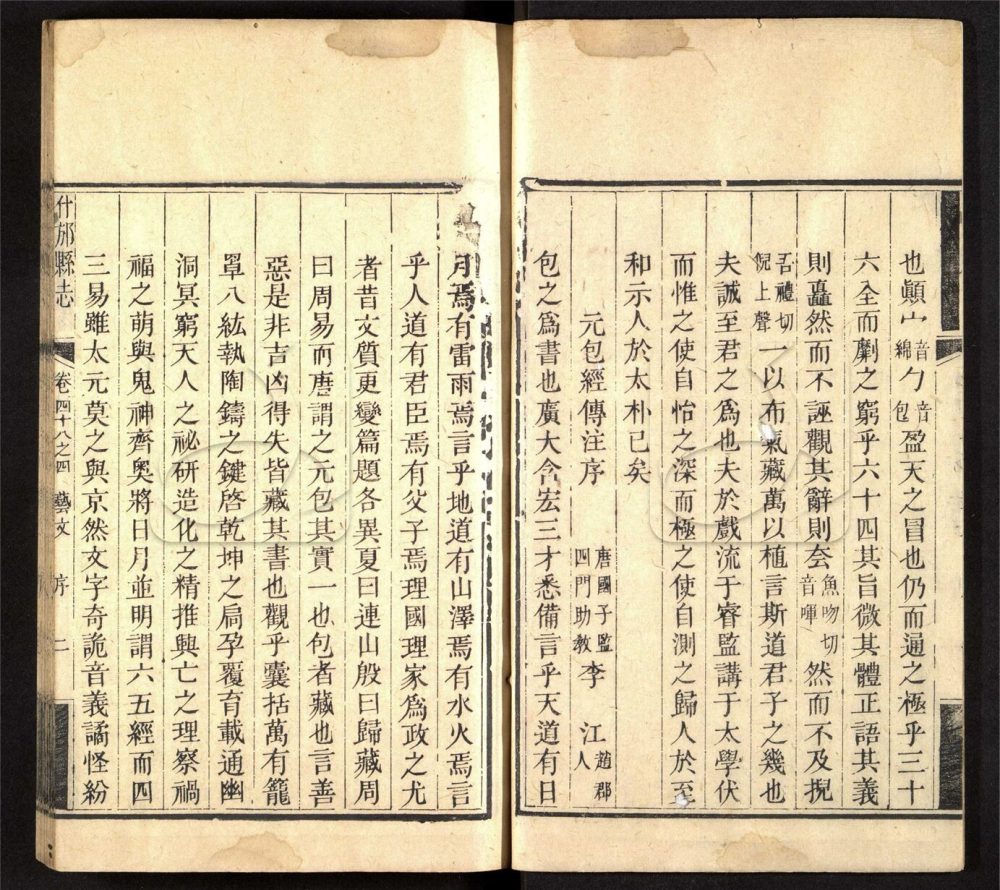 也顚宀音綿勹音包盈天之冒也仍而逼之極乎三十
六全而劘之窮乎六十四其旨微其體正語其義
則矗然而不誣觀其辭則㑹魚吻切音喗然而不及掜
吾禮切倪上聲一以布氣藏萬以植言斯道君子之幾也
夫誠至君之爲也夫於戲流于睿監講于太學伏
而惟之使自怡之深而極之使自測之歸人於至
和示人於太朴已矣
元包經傳注序 唐國子監四門助敎李江趙郡人
包之爲書也廣大含宏三才悉備言乎天道有日
月焉有雷雨焉言乎地道有山澤焉有水火焉言
乎人道有君臣焉有父子焉理國理家爲政之尤
者昔文質更變篇題各異夏曰連山殷曰歸藏周
曰周易而唐謂之元包其實一也包者藏也言善
惡是非吉凶得失皆藏其書也觀乎囊括萬有籠
罩八紘執陶鑄之鍵啓乾坤之扃孕覆育載通幽
洞冥窮天人之祕硏造化之精推興亡之理察禍
福之萌與鬼神齊奧將日月並明謂六五經而四
三易雖太元莫之與京然文字奇詭音義譎怪紛
什邡縣志 卷四十八之四 藝文 序 二